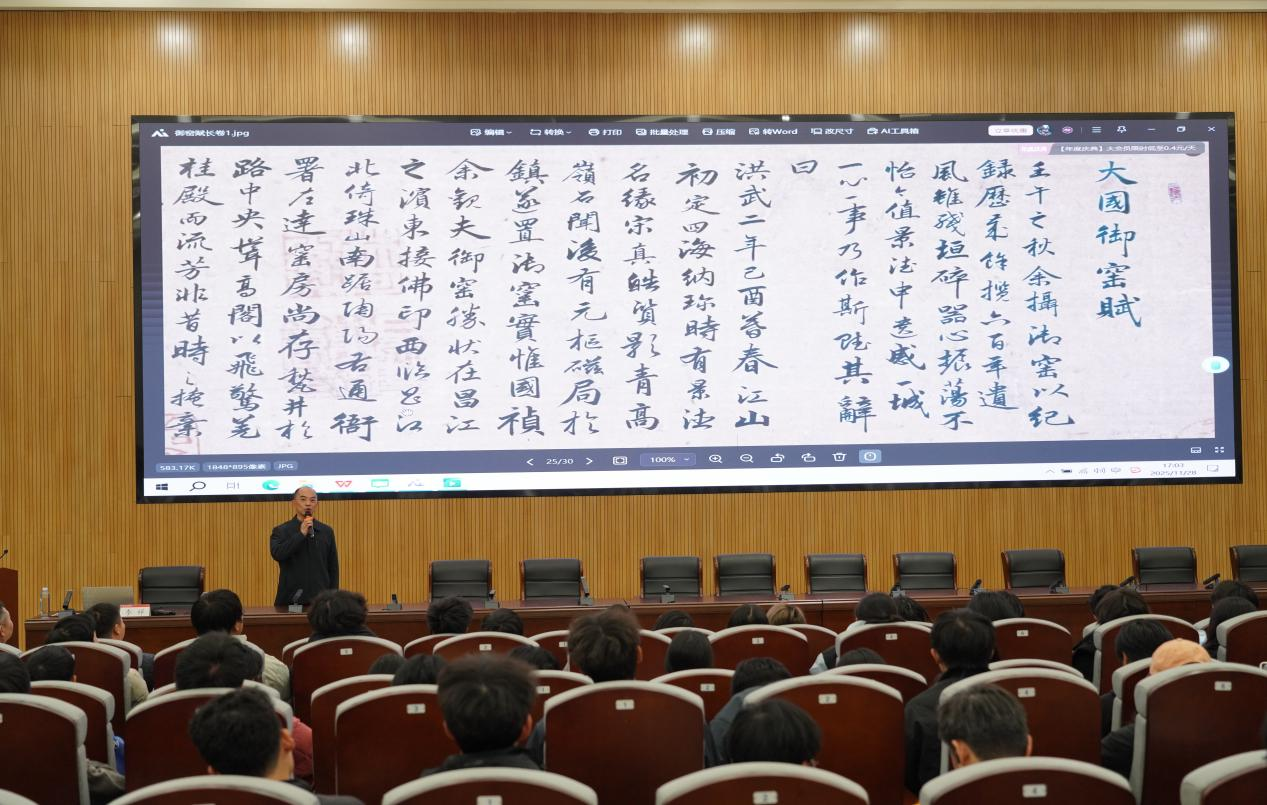 御窑赋长卷1.jpg
编辑
转换
打印
批量处理
压缩
转Word
改尺寸
AI工具箱
【年度庆典】大会员限时低至0.4元/天
大國御窑賦
壬午之秋余攝御窑以紀
風雖殘垣碎器心振蕩不
怡值景德申遺感一城
一心一事乃作斯賦其辭
曰
洪武二年己酉暮春江山
初定四海納珍時有景德
名緣宋真皓質影青高
嶺名聞後有元樞磁局於
鎮遂置御窑實惟國禎
余觀夫御窑勝狀在昌江
之濱東接佛印西臨昌江
北倚珠山南踞陶陽右通衙
署左達窑房尚存甃井於
路中央聳高閣以飛驚羌
桂殿而流芳非昔時之掩棄
583.17K
1848*895像素
JPG
25/30
100%
17:03
2025/11/28